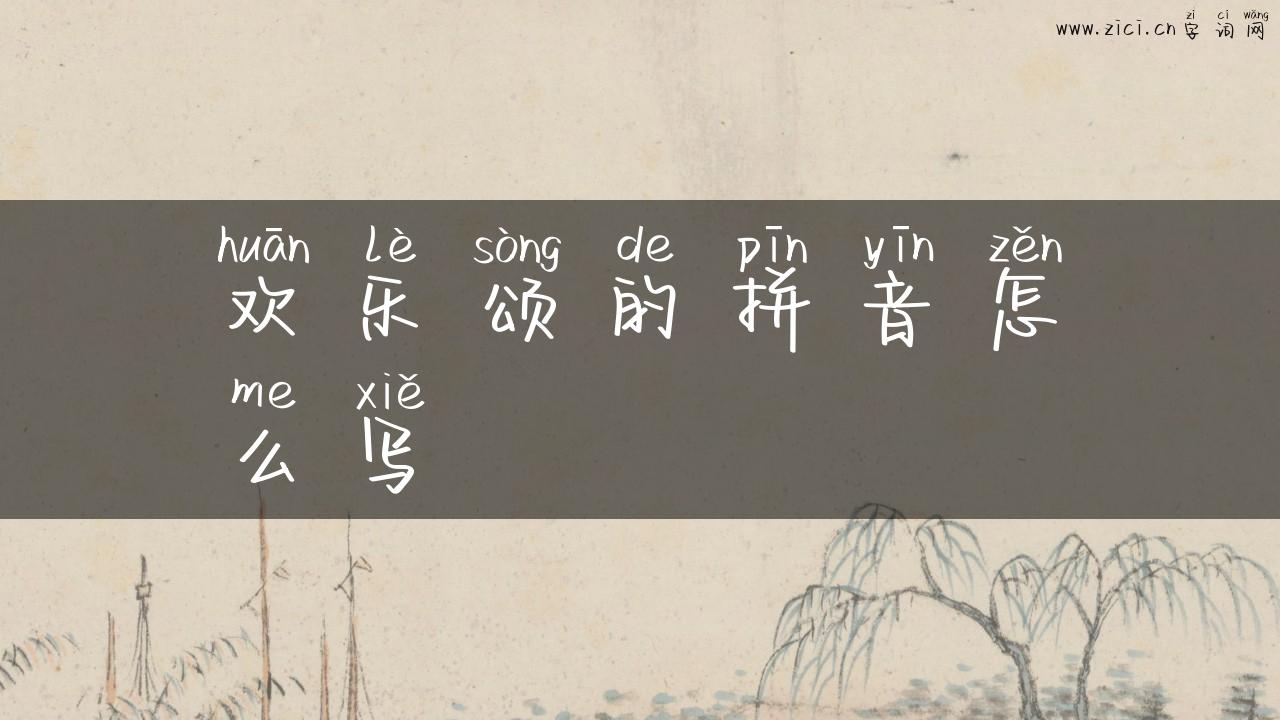 zì cí wǎng
www.zici.cn 字 词 网
huān lè sòng de pīn yīn zěn
欢 乐 颂 的 拼 音 怎
me xiě
么 写